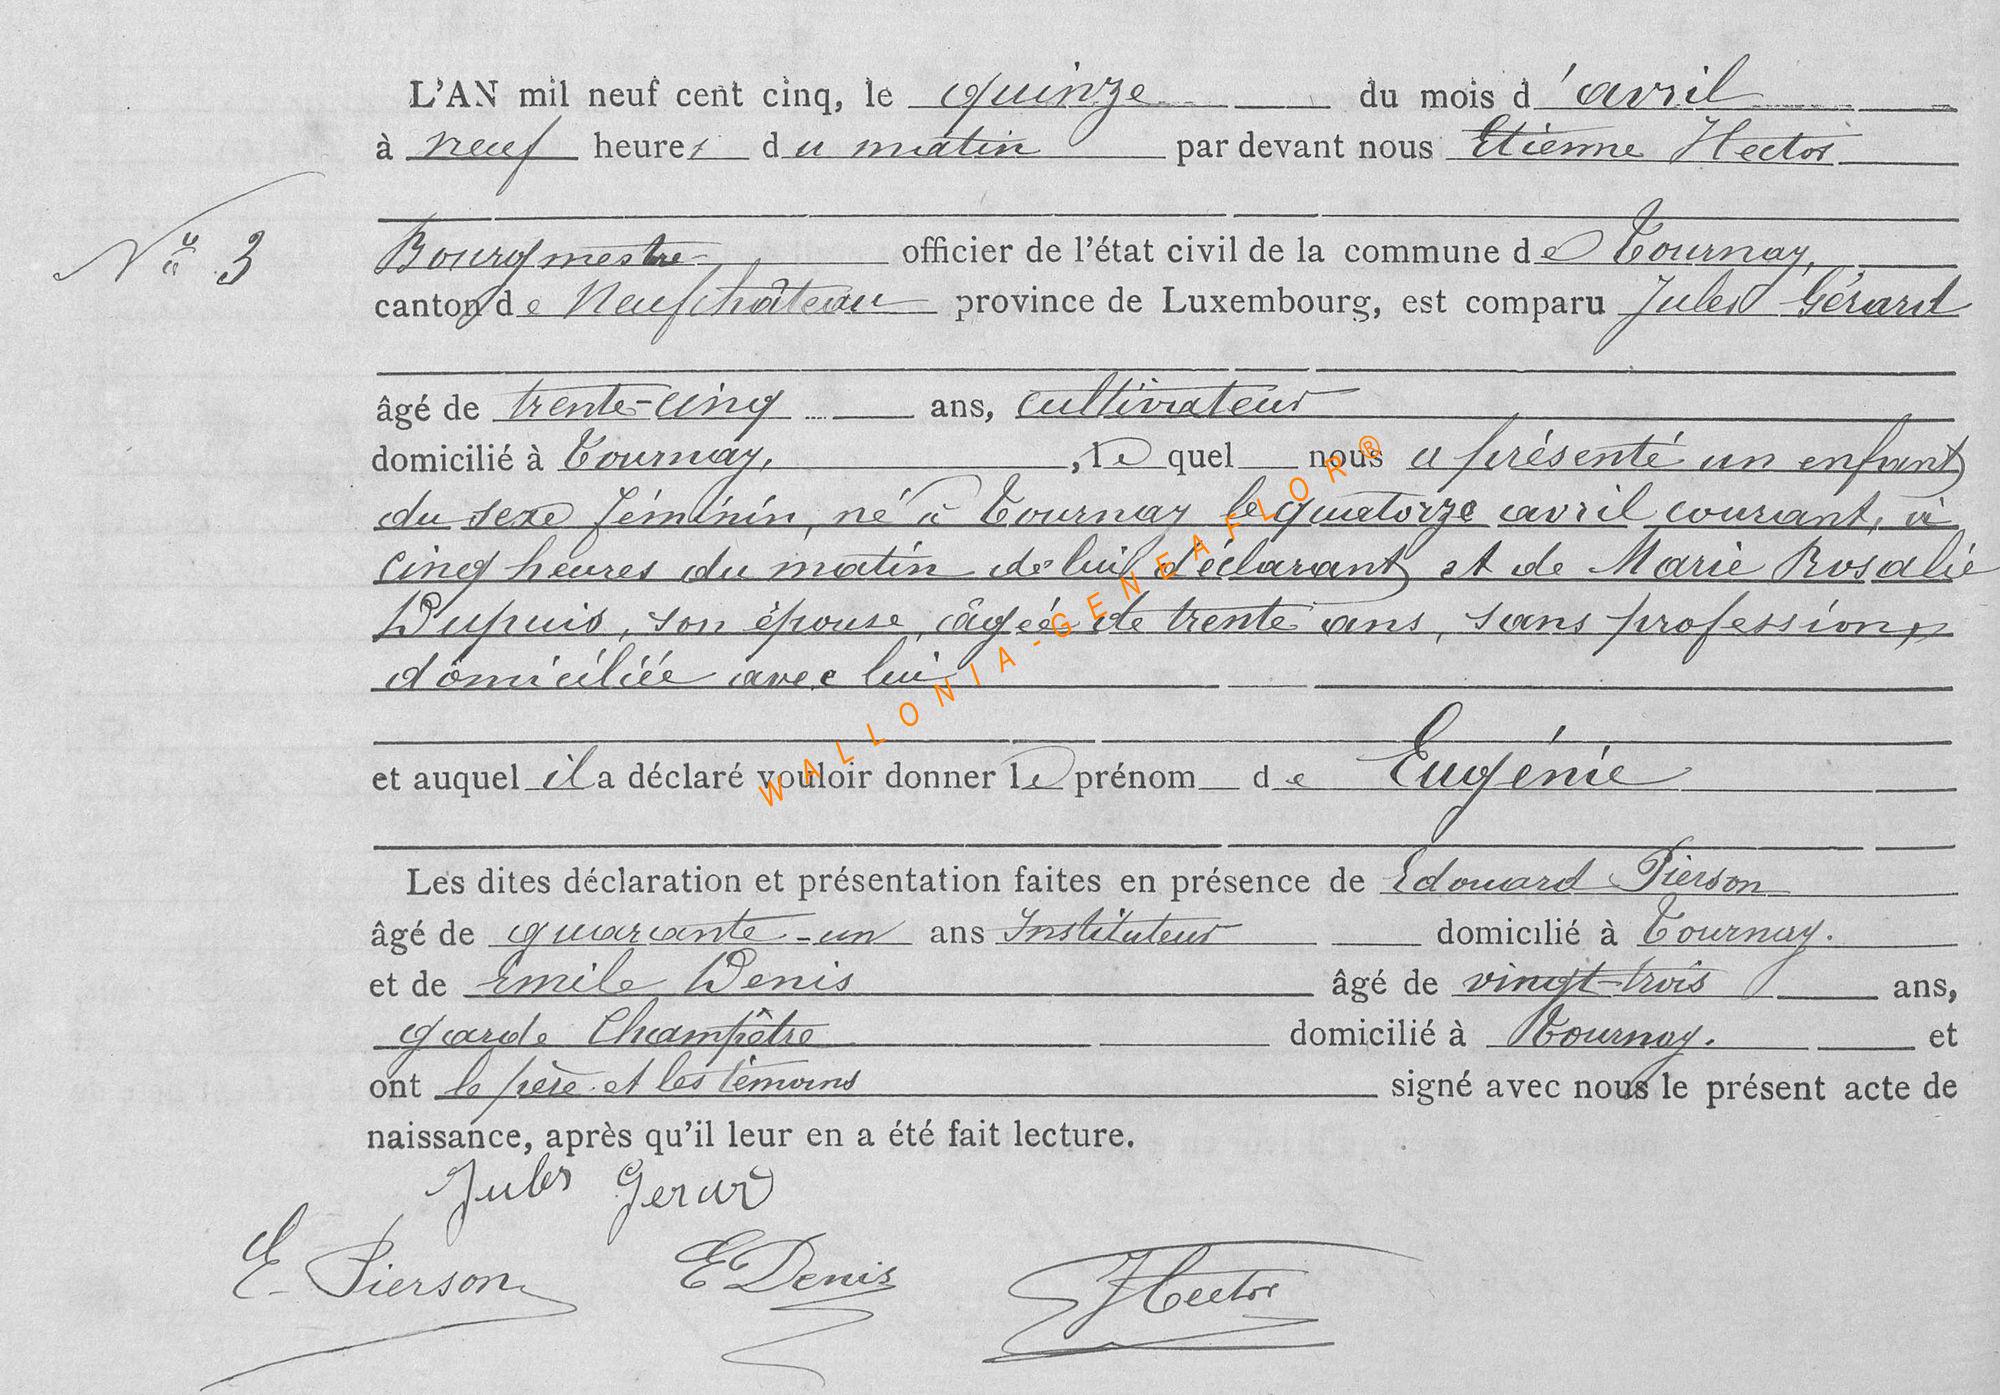 L'AN mil neuf cent cinq, le quinze du mois d'avril
à neuf heures du matin par devant nous Etienne Hector
Nº 3
Bourgmestre officier de l'état civil de la commune de Tournay,
canton de Neufchâteau province de Luxembourg, est comparu Jules Gérard
âgé de trente-cinq ans, cultivateur
domicilié à Tournay, , le quel nous a présenté un enfant
du sexe féminin, né à Tournay le quatorze avril courant, à
cinq heures du matin de lui déclarant et de Marie Rosalie
Dupuis, son épouse, âgée de trente ans, sans profession,
domiciliée avec lui
et auquel il a déclaré vouloir donner le prénom de Eugénie
Les dites déclaration et présentation faites en présence de Edouard Pierson
âgé de quarante-un ans Instituteur domicilié à Tournay.
et de Emile Denis âgé de vingt-trois ans,
garde Champêtre domicilié à Tournay. et
ont le père et les témoins signé avec nous le présent acte de
naissance, après qu'il leur en a été fait lecture.
Jules Gerard
E. Pierson E Denis Hector
WALLONIA-GENEAFLOR®